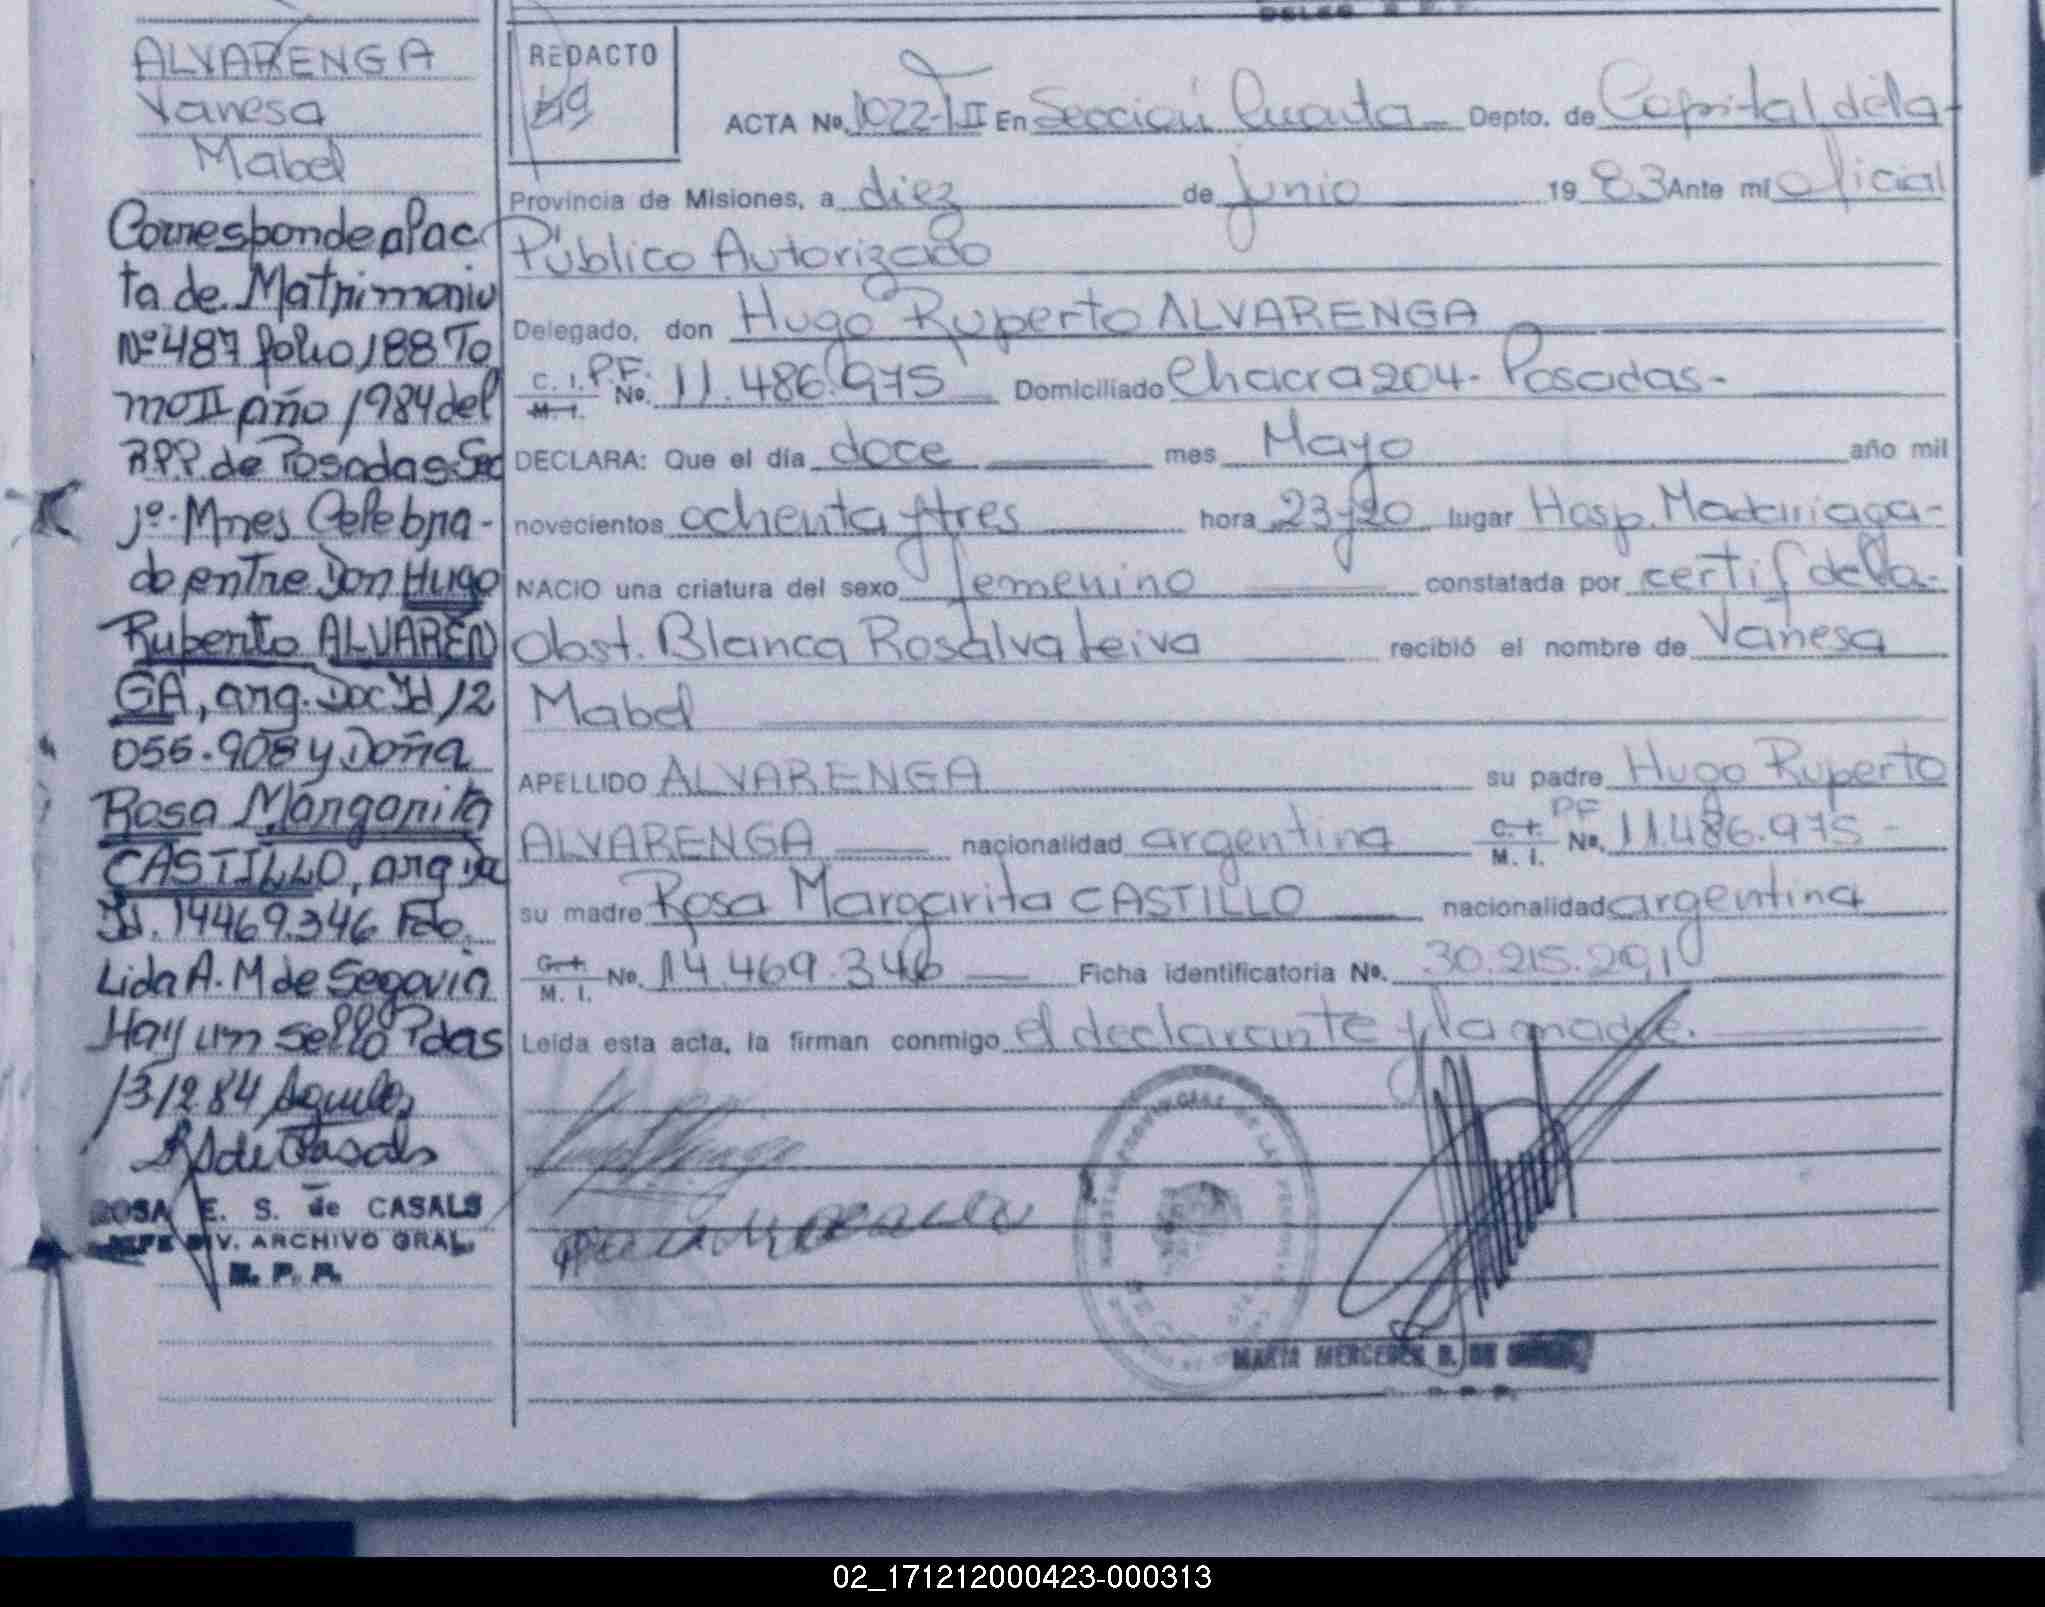 ALVARENGA
Vanesa
Mabel
Corresponde al ac
ta de Matrimonio
Nº 487 folio 188 To
mo II año 1984 del
R.P.P. de Posadas Sec
1º. Mnes Celebra-
do entre Don Hugo
Ruperto ALVAREN
GA, arg. Doc Id 12
055.908 y Doña
Rosa Margarita
CASTILLO, arg
Id. 14469.346 Fdo.
Lida A. M de Segovia
Hay un sello Pdas
13/12 84
ROSA E. S. de CASALS
JEFE DIV. ARCHIVO GRAL.
R. P. P.
REDACTO
ACTA No. 1022-T II En Sección Cuarta Depto. de Capital de la-
Provincia de Misiones, a diez de junio 19 83 Ante mí oficial
Público Autorizado
Delegado, don Hugo Ruperto ALVARENGA
C. I. P.F.
M. I. No. 11.486.975 Domiciliado Chacra 204- Posadas-
DECLARA: Que el día doce mes Mayo año mil
novecientos ochenta y tres hora 23 y 20 lugar Hosp. Madariaga-
NACIO una criatura del sexo femenino constatada por certif de la-
Obst. Blanca Rosalva Leiva recibió el nombre de Vanesa
Mabel
APELLIDO ALVARENGA su padre Hugo Ruperto
ALVARENGA nacionalidad argentina C. I. PF M. I. No. 11.486.975-
su madre Rosa Margarita CASTILLO nacionalidad argentina
C. I. M. I. No. 14.469.346 Ficha identificatoria No. 30.215.291
Leída esta acta, la firman conmigo el declarante y la madre.
MARIA MERCEDES B. DE
02_171212000423-000313